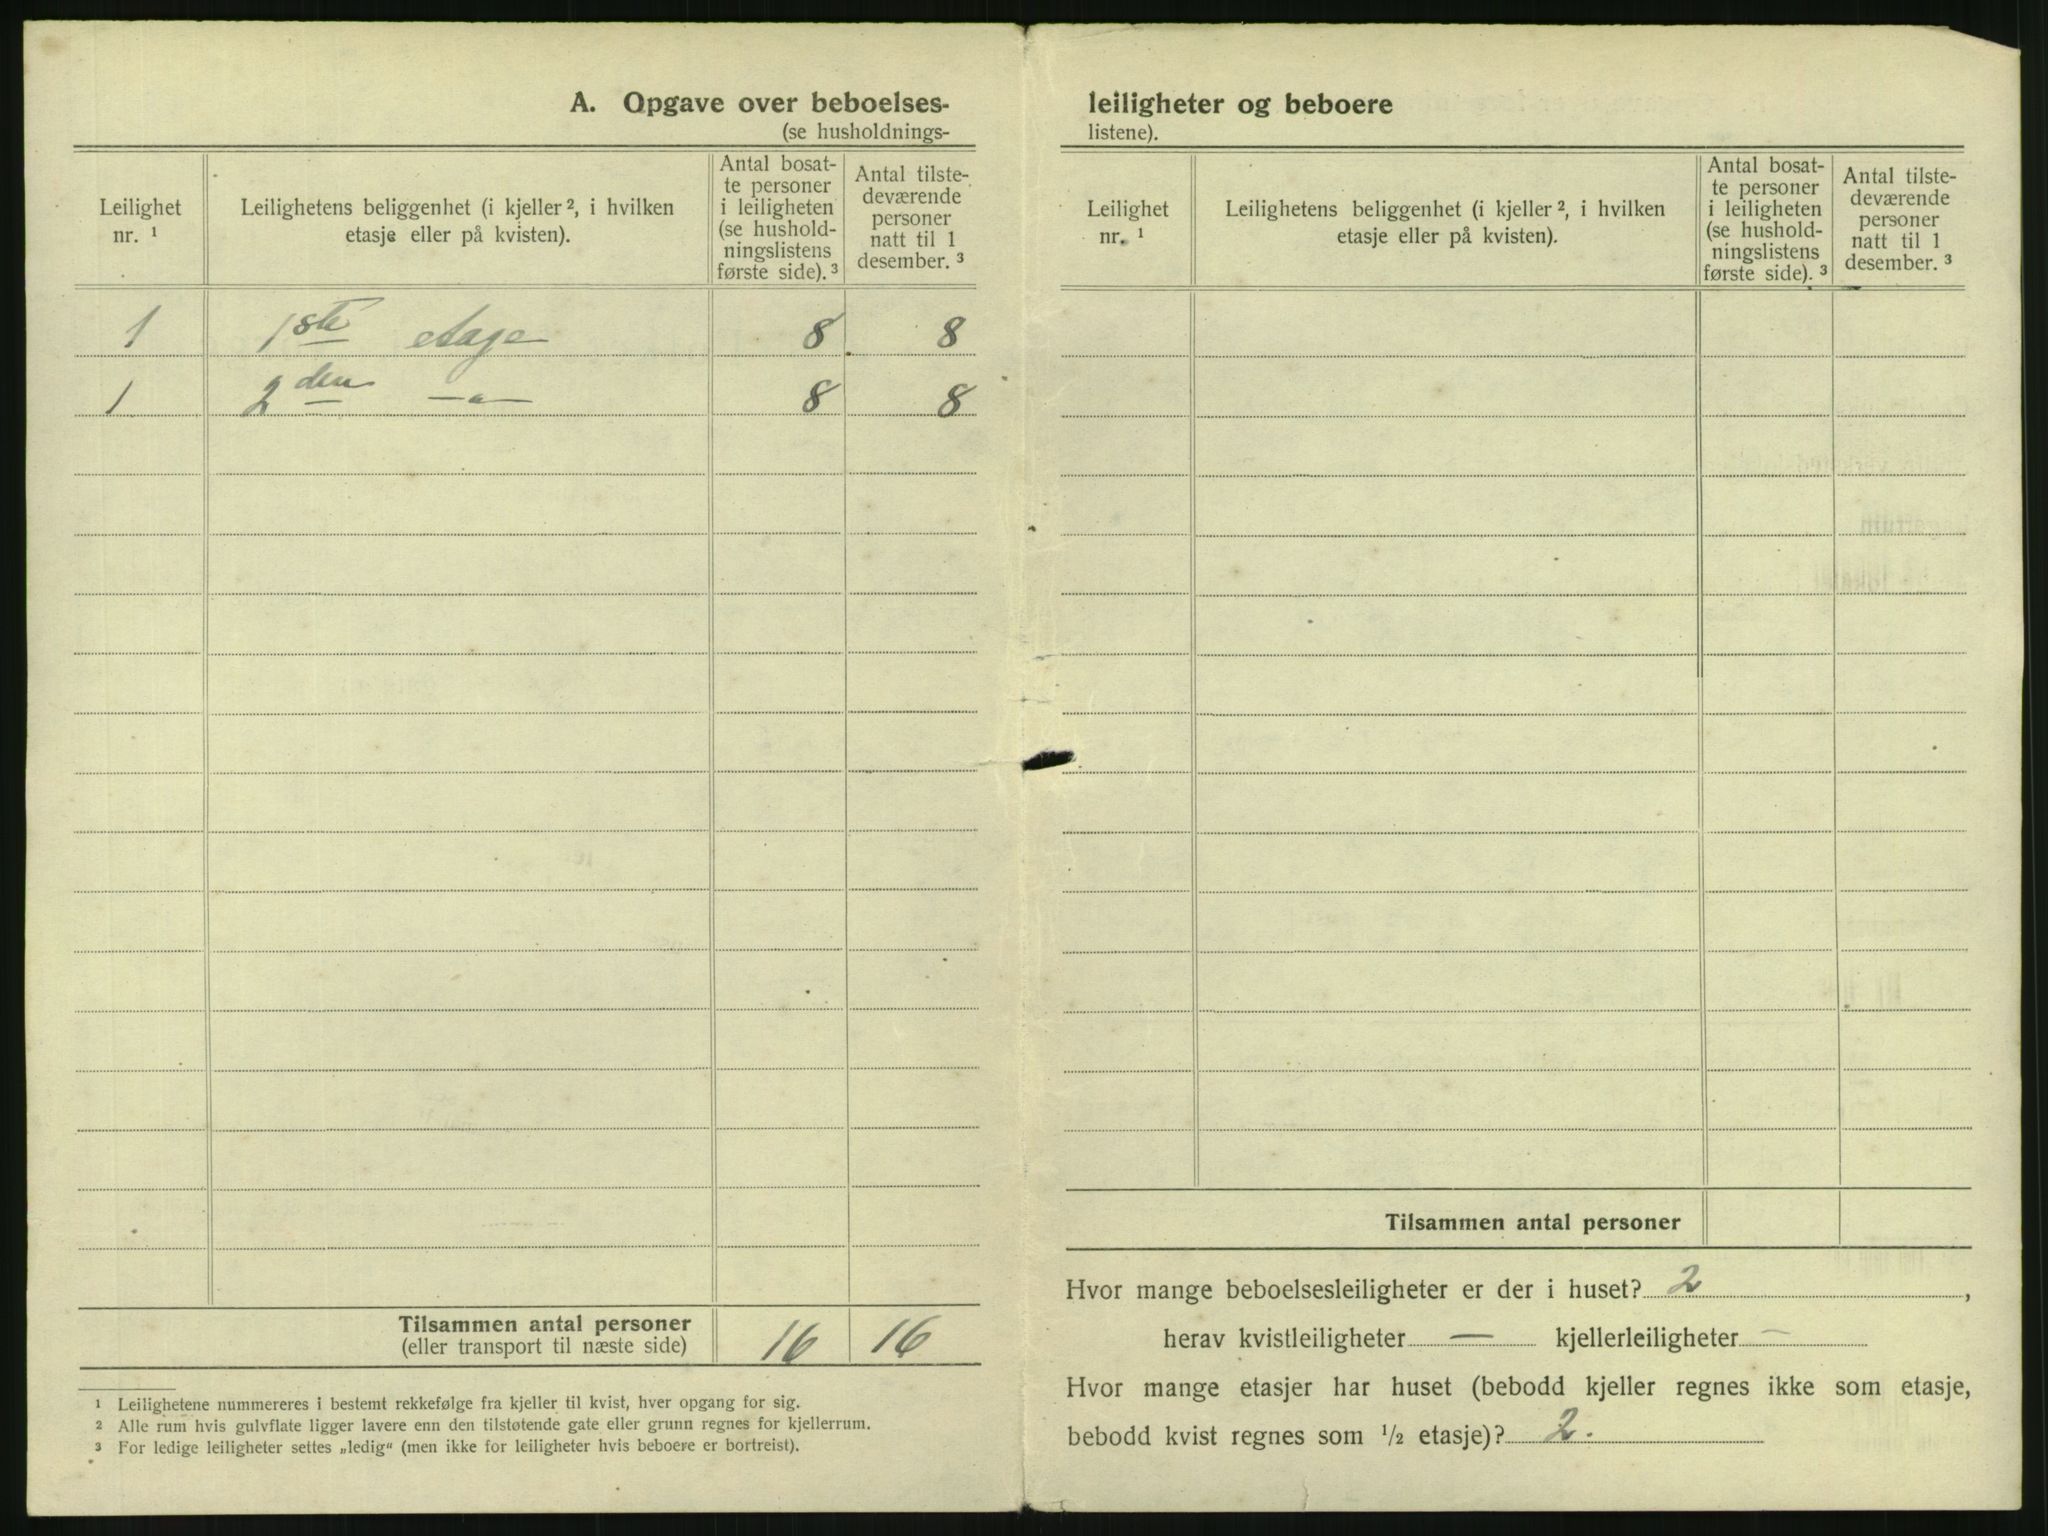 A. Opgave over beboelses-
(se husholdnings-
Leilighet
nr. ¹
Leilighetens beliggenhet (i kjeller ², i hvilken
etasje eller på kvisten).
Antal bosat-
te personer
i leiligheten
(se hushold-
ningslistens
første side). ³
Antal tilste-
deværende
personer
natt til 1
desember. ³
1 1ste etage 8 8
1 2den —"— 8 8
Tilsammen antal personer
(eller transport til næste side)
16 16
¹ Leilighetene nummereres i bestemt rekkefølge fra kjeller til kvist, hver opgang for sig.
² Alle rum hvis gulvflate ligger lavere enn den tilstøtende gate eller grunn regnes for kjellerrum.
³ For ledige leiligheter settes „ledig“ (men ikke for leiligheter hvis beboere er bortreist).
leiligheter og beboere
listene).
Leilighet
nr. ¹
Leilighetens beliggenhet (i kjeller ², i hvilken
etasje eller på kvisten).
Antal bosat-
te personer
i leiligheten
(se hushold-
ningslistens
første side). ³
Antal tilste-
deværende
personer
natt til 1
desember. ³
Tilsammen antal personer
Hvor mange beboelsesleiligheter er der i huset? 2,
herav kvistleiligheter — kjellerleiligheter —
Hvor mange etasjer har huset (bebodd kjeller regnes ikke som etasje,
bebodd kvist regnes som ½ etasje)? 2.